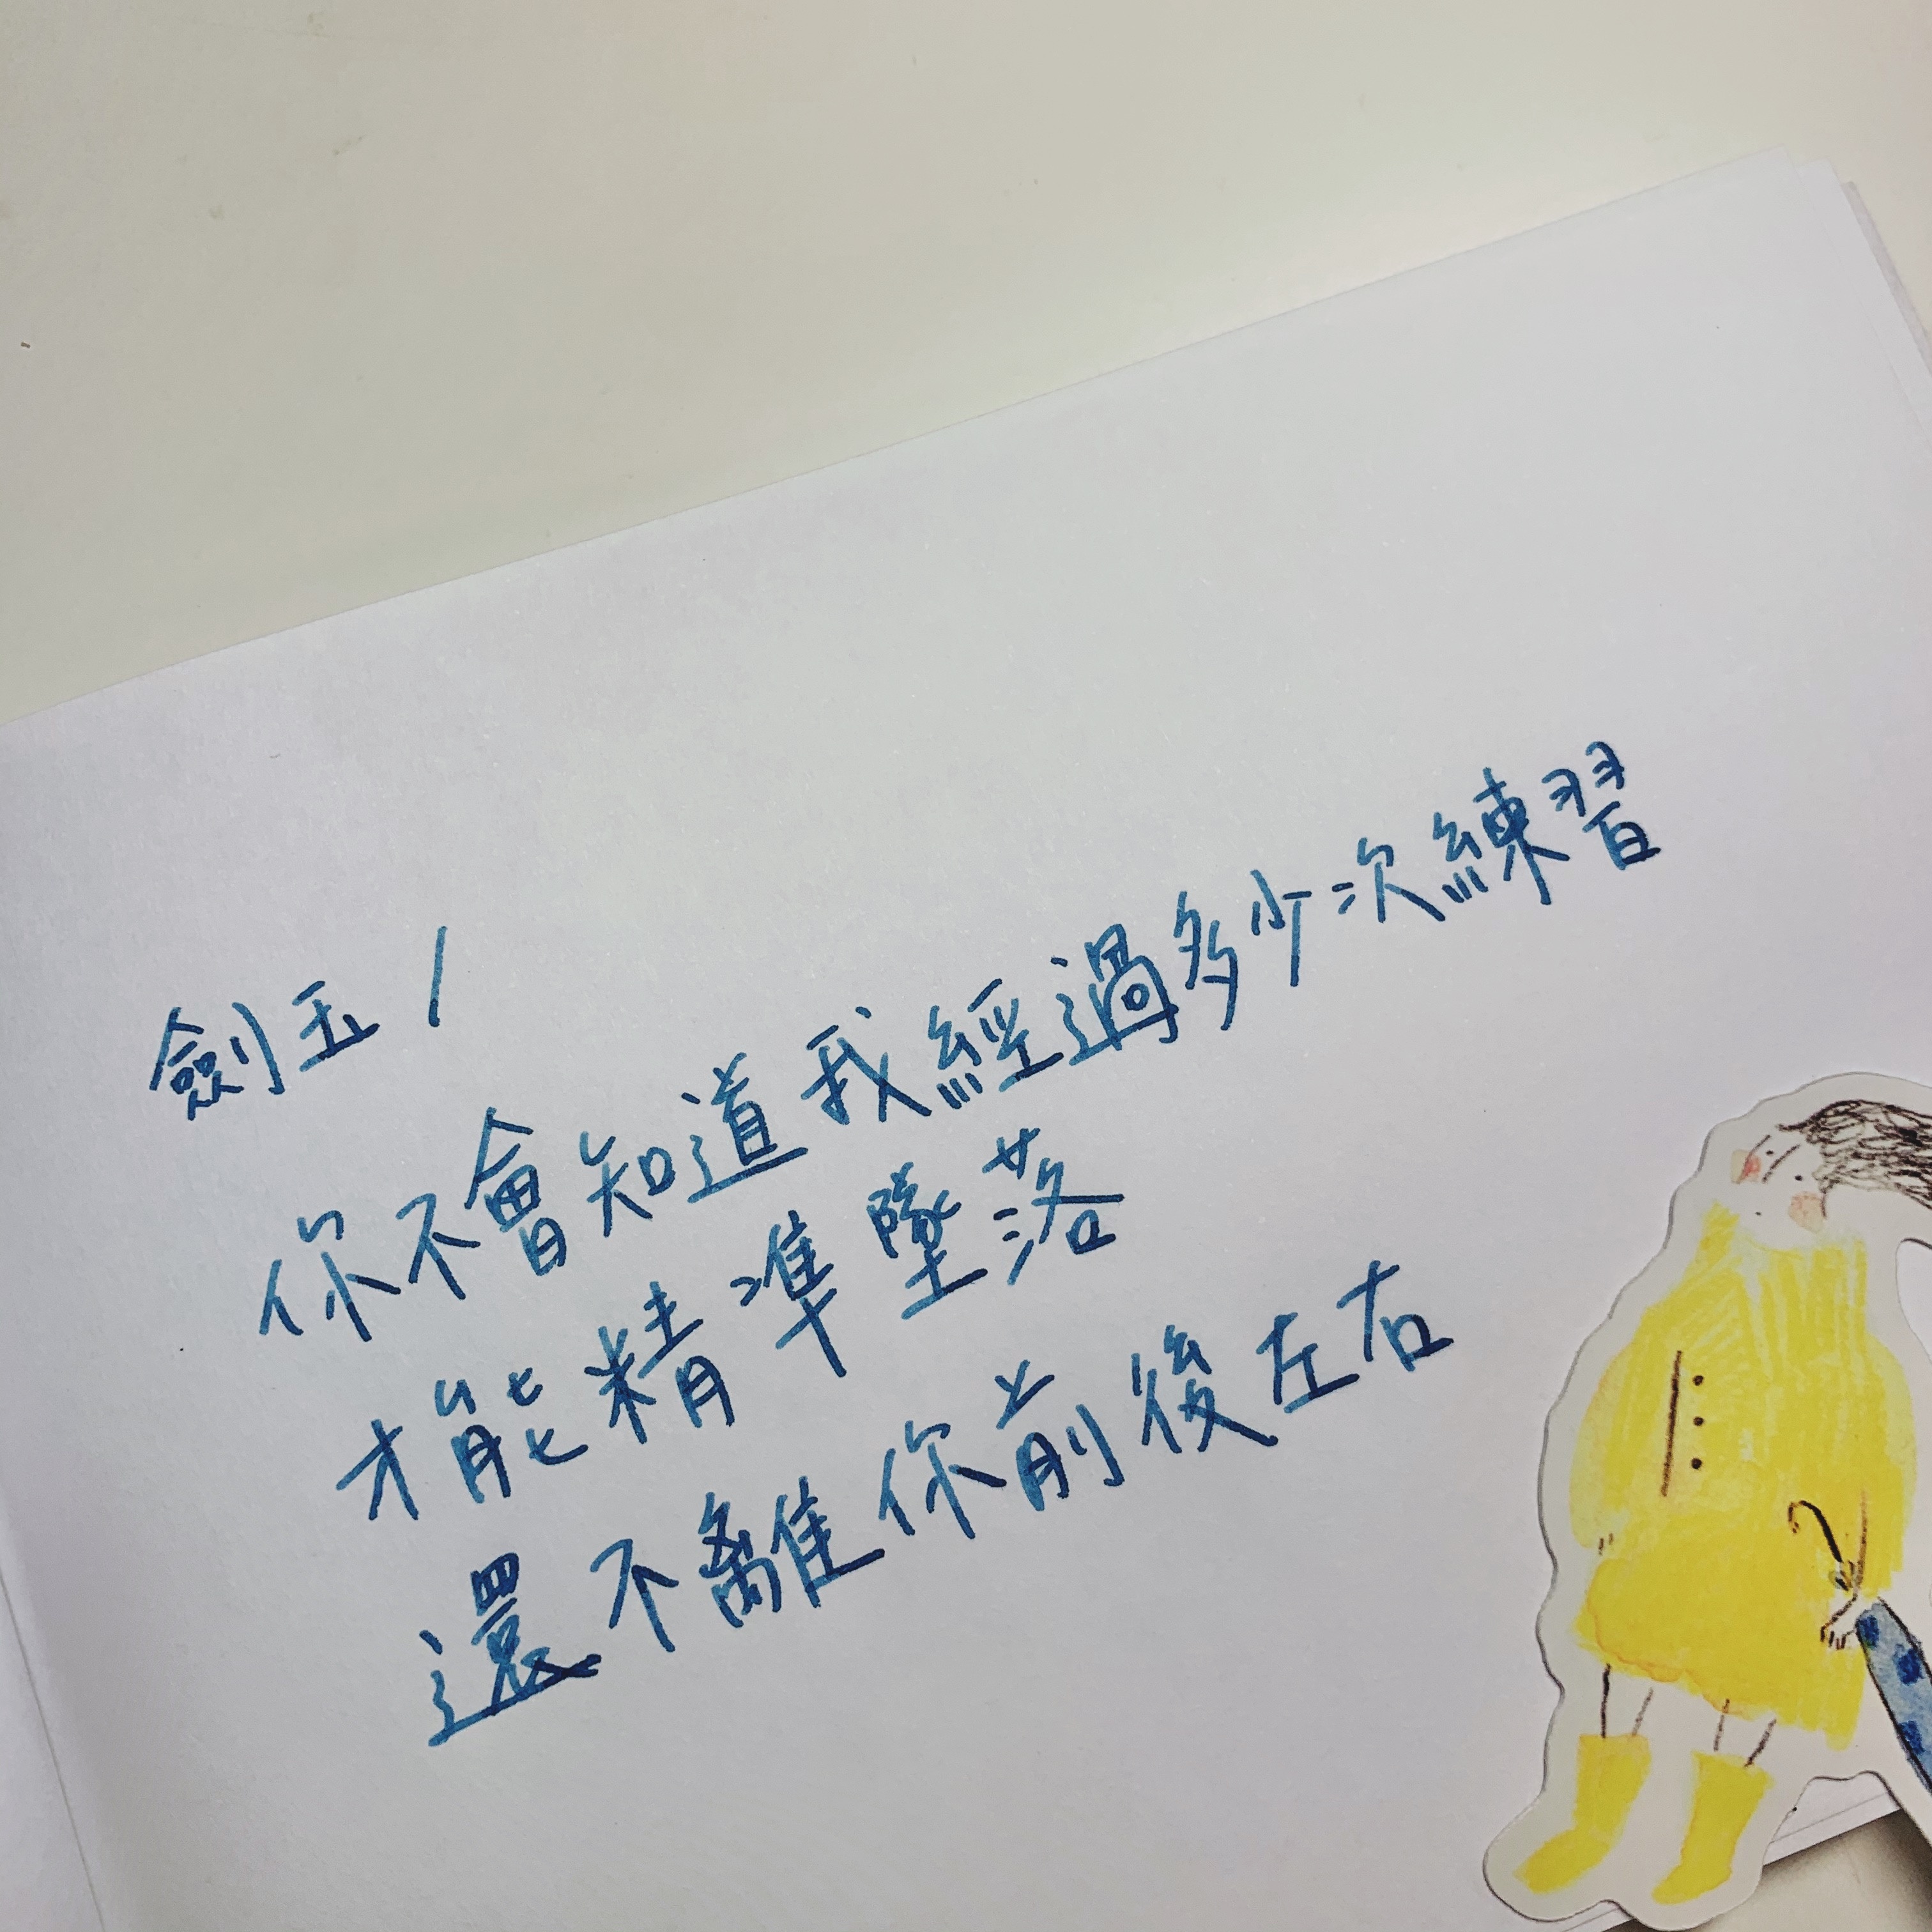 劍玉／
你不會知道我經過多少次練習
才能精準墜落
還不離你前後左右